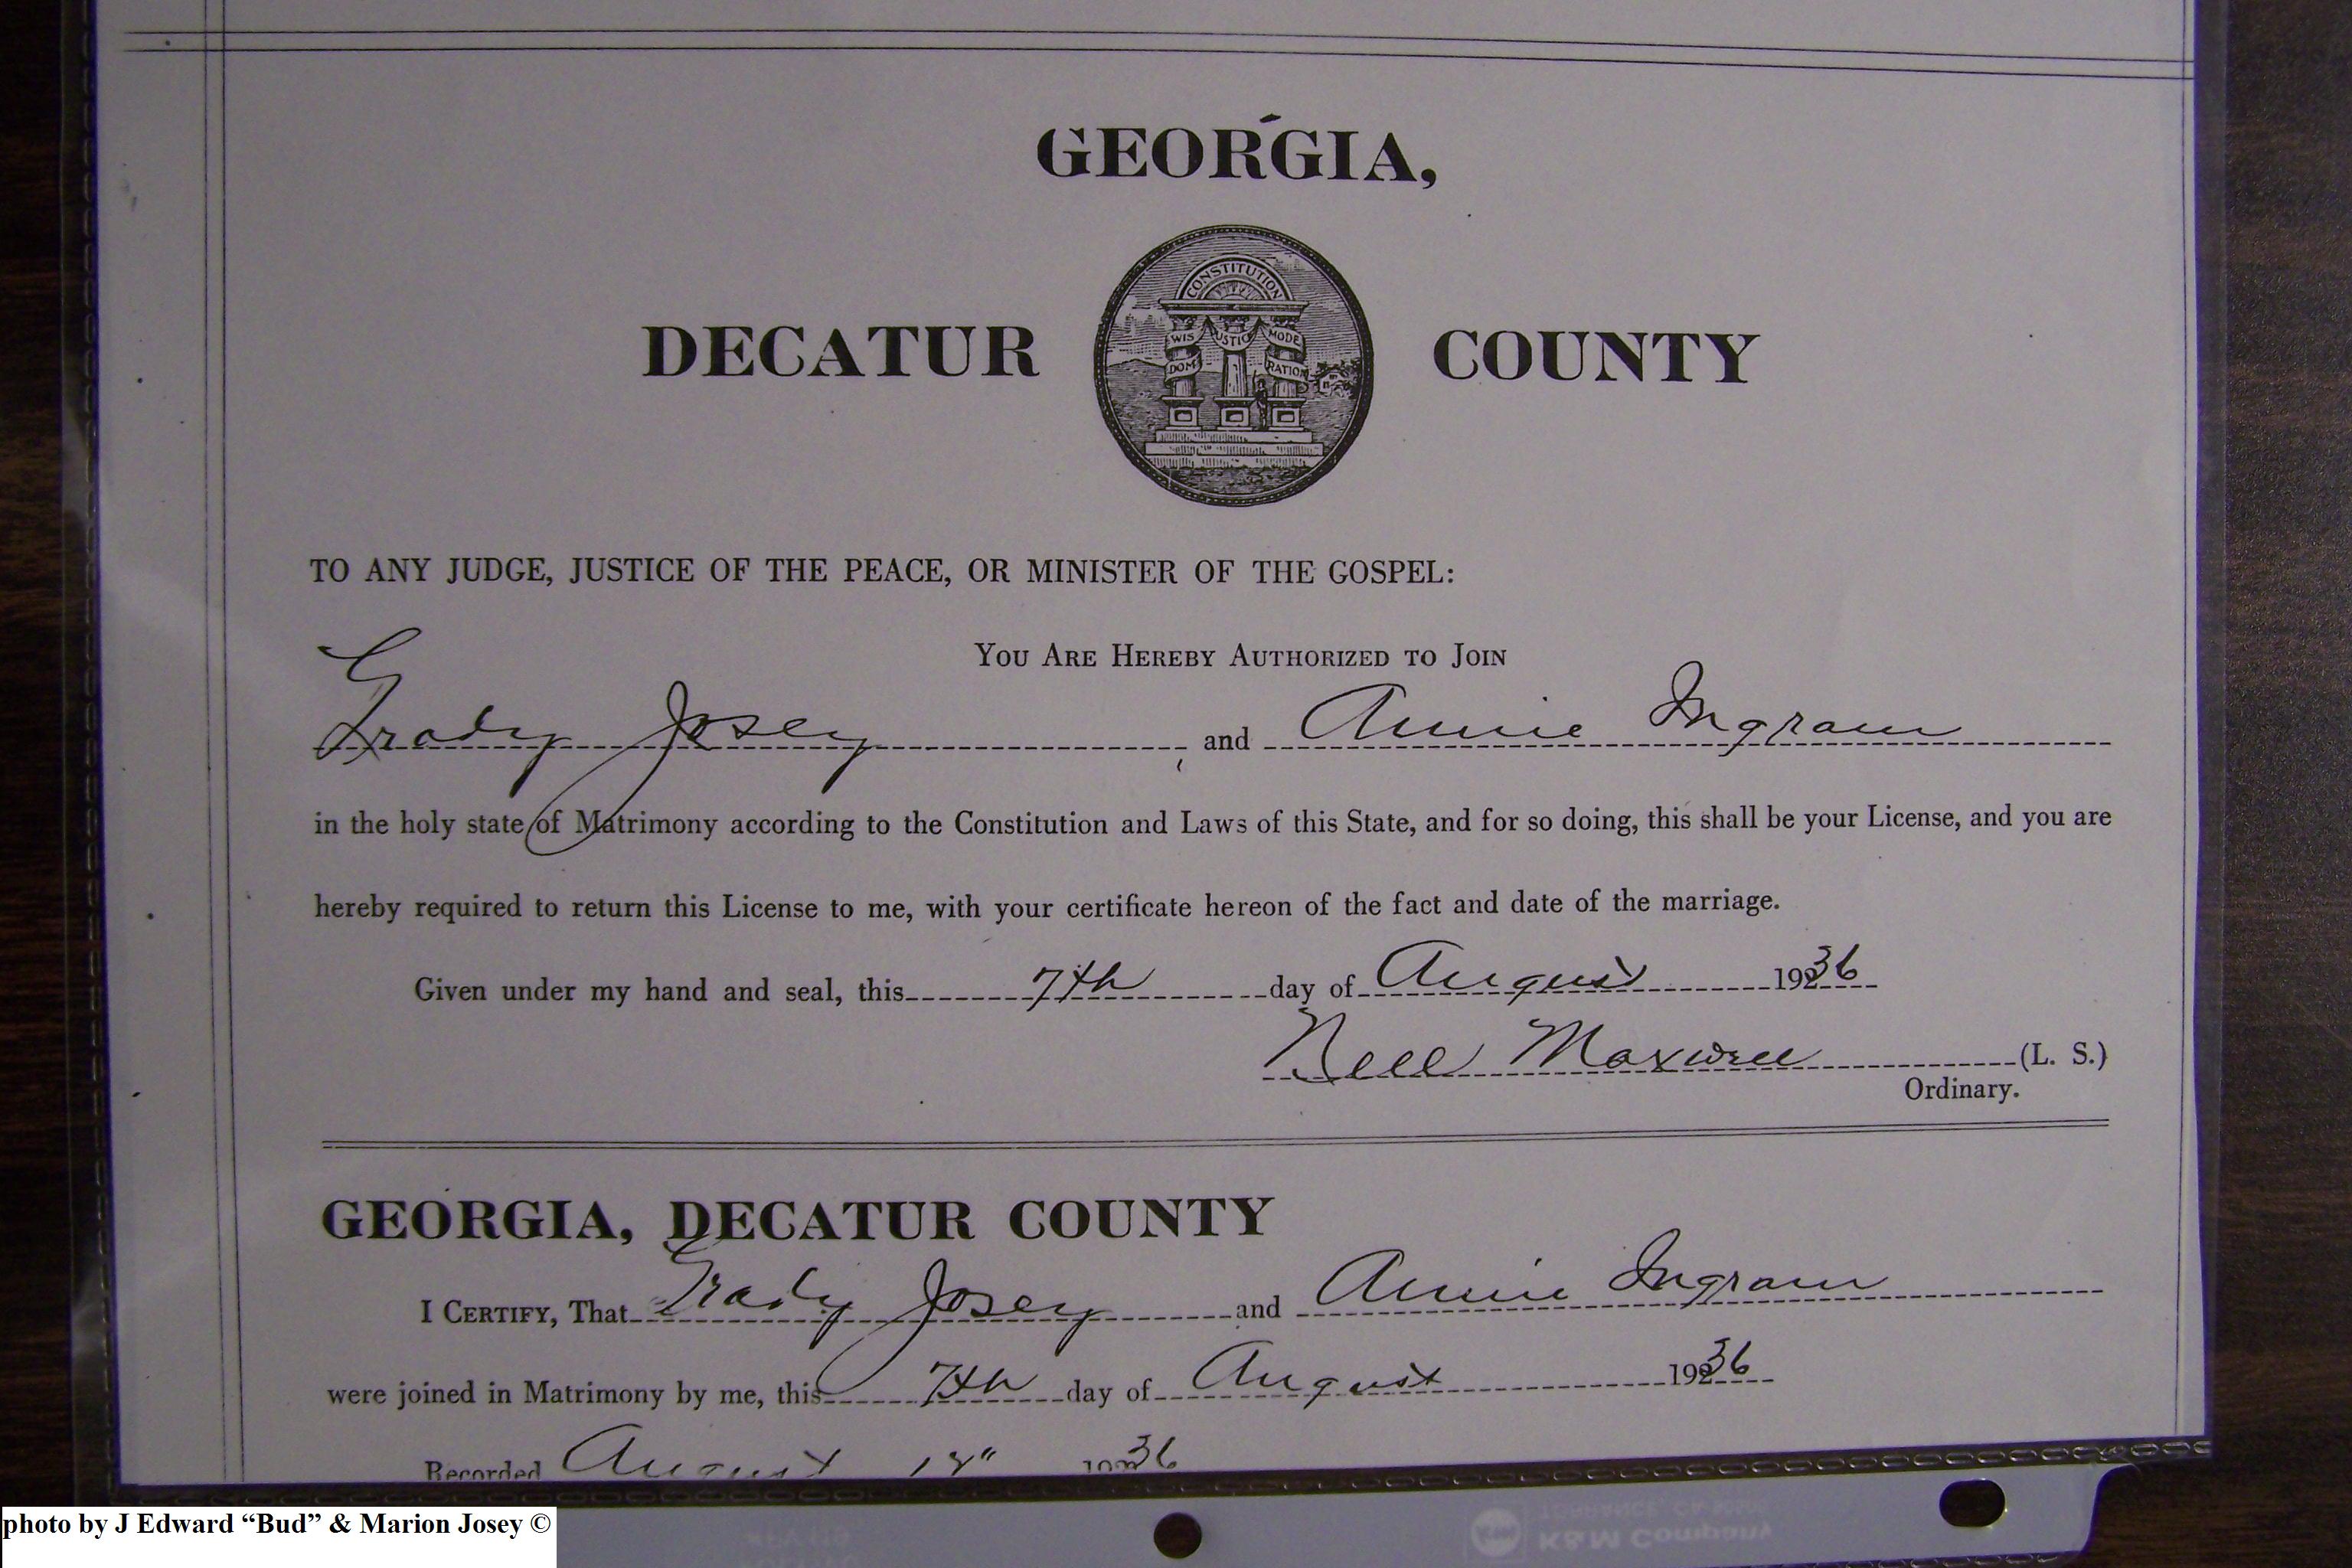 GEORGIA,
CONSTITUTION
WIS JUSTICE MODE
DOM RATION
DECATUR COUNTY
TO ANY JUDGE, JUSTICE OF THE PEACE, OR MINISTER OF THE GOSPEL:
YOU ARE HEREBY AUTHORIZED TO JOIN
Grady Josey and Annie Ingram
in the holy state of Matrimony according to the Constitution and Laws of this State, and for so doing, this shall be your License, and you are
hereby required to return this License to me, with your certificate hereon of the fact and date of the marriage.
Given under my hand and seal, this 7th day of August 1936
Nell Maxwell (L. S.)
Ordinary.
GEORGIA, DECATUR COUNTY
I CERTIFY, That Grady Josey and Annie Ingram
were joined in Matrimony by me, this 7th day of August 1936
Recorded August 1936
K&M Company
photo by J Edward “Bud” & Marion Josey ©